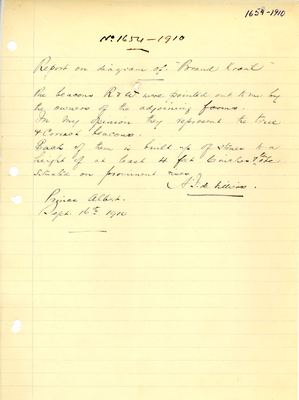 1654-1910
No 1654-1910
Report on diagram of "Brand Kraal"
The beacons R & W were pointed out to me by
the owners of the adjoining farms.
In my opinion they represent the true
& correct beacons.
Each of them is built up of stones to a
height of at least 4 feet
situated on prominent
Prince Albert.
Sept. 16th 1910